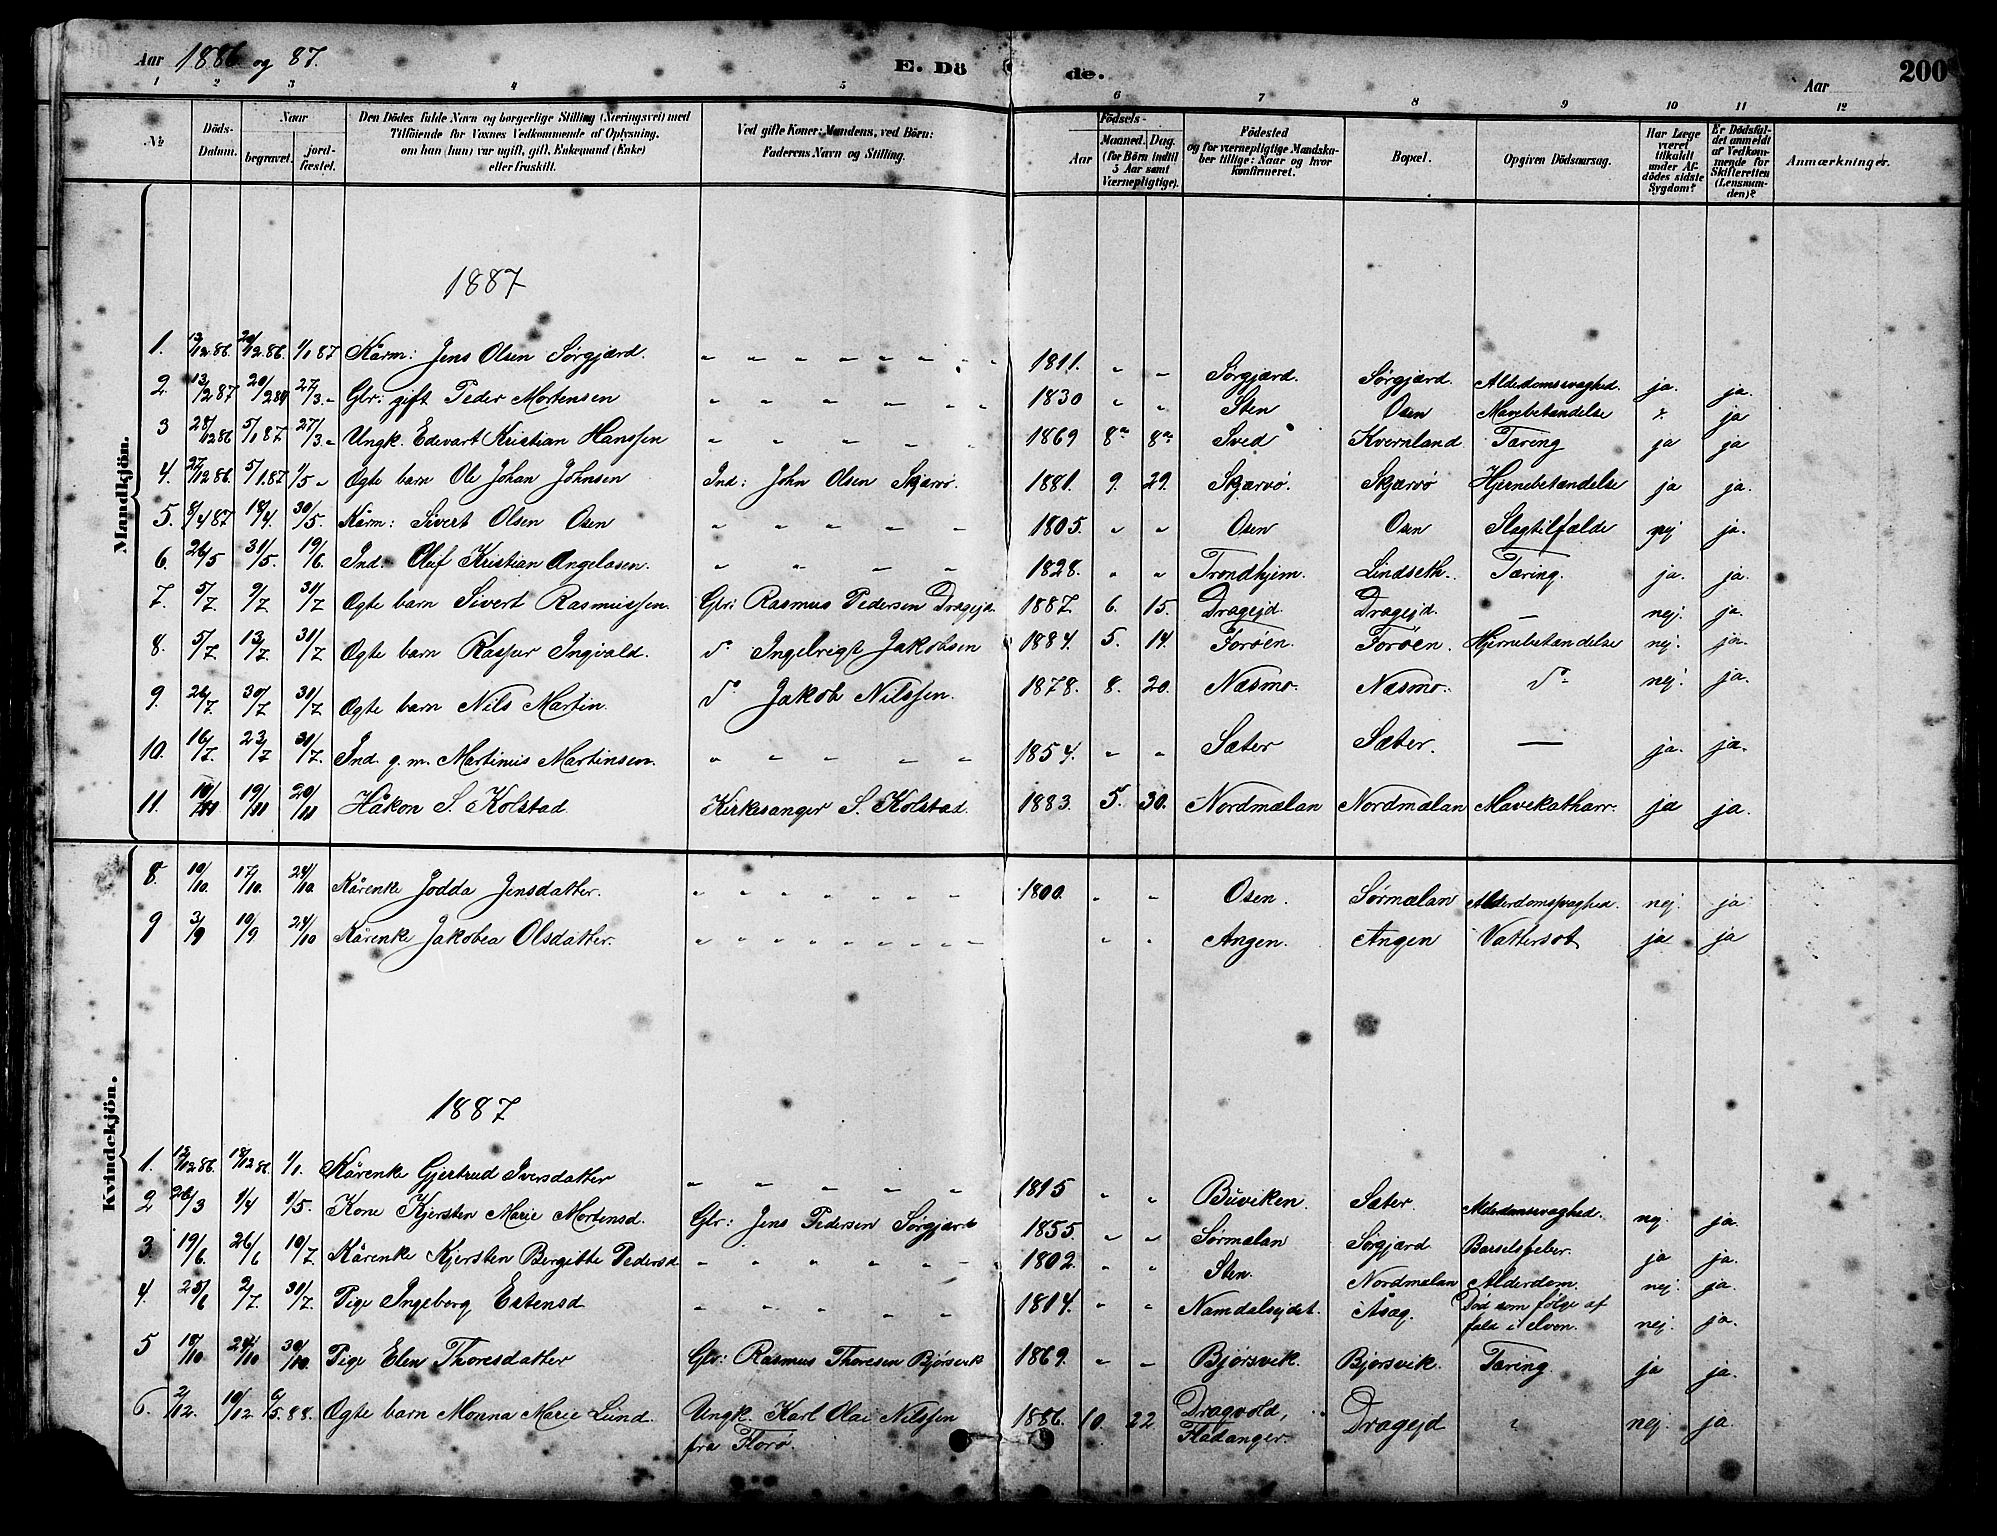 Aar 1886 og 87. E. Dö de. Aar 200
1 2 3 4 5 6 7 8 9 10 11 12
№ Döds-Datum. Naar begravet. jordfæstet. Den Dödes fulde Navn og borgerlige Stilling (Næringsvei) med Tilföiende for Voxnes Vedkommende af Oplysning, om han (hun) var ugift, gift, Enkemand (Enke) eller fraskilt. Ved gifte Koner: Mandens, ved Börn: Faderens Navn og Stilling. Födsels- Aar Maaned. Dag. (for Börn indtil 5 Aar samt Værnepligtige). Födested og for værnepligtige Mandskaber tillige: Naar og hvor konfirmeret. Bopæl. Opgiven Dödsaarsag. Har Læge været tilkaldt under Afdödes sidste Sygdom? Er Dödsfaldet anmeldt af Vedkommende for Skifteretten (Lensmanden)? Anmærkninger.
Mandkjön.
1887
1. 13/12 86. 20/12 86. 1/1 87 Kårm: Jens Olsen Sørgjærd. " " " 1811. " " Sørgjærd. Sørgjærd. Alderdomssvaghed ja. ja.
2. 13/2 87 20/2 87 27/3 " Gbr: gift Peder Mortensen " " " 1830 " " Sten Osen Mavebetændelse ja
3 28/12 86 5/1 87 27/3 " Ungk. Edevart Kristian Hanssen " " " 1869 8 8 Sved Kvernland. Tæring ja ja
4. 27/12 86. 5/1 87 1/5 " Ægte barn Ole Johan Johnsen Ind: John Olsen Skjærvø. 1881. 9. 29. Skjærvø. Skjærvø Hjernebetændelse ja ja.
5. 8/4 87 18/4. 30/5. Kårm: Sivert Olsen Osen " " " 1805. " " Osen Osen Slagtilfælde nej ja.
6. 26/5 31/5. 19/6 Ind. Oluf Kristian Angelasen. " " " 1828. " " Trondhjem. Lindseth. Tæring. ja. ja.
7. 5/7. 9/7 31/7 Ægte barn Sivert Rasmussen. Gbr: Rasmus Pedersen Dragejd. 1887. 6. 15. Dragejd. Dragejd. — nej. ja.
8. 5/7 13/7. 31/7 Ægte barn Kasper Ingvald. do Ingebrigt Jakobsen 1884. 5. 14. Forøen. Forøen. Hjernebetændelse nej. ja.
9. 26/7. 30/7 31/7 Ægte barn Nils Martin. do Jakob Nilssen. 1878. 8. 20. Næsmo. Næsmo. do nej. ja.
10. 16/7 23/7 31/7. Ind g. m. Martinus Martinsen. " " " 1854. " " Sæter Sæter. — ja. ja.
11. 10/11 19/11 20/11 Håkon S. Kolstad. Kirkesanger S. Kolstad. 1883. 5. 30. Nordmælan Nordmælan Mavekatharr. ja ja.
Kvindekjön.
8. 10/10. 17/10. 24/10 Kårenke Jodda Jensdatter. " " " 1800. " " Osen. Sørmælan Alderdomssvaghed. nej. ja
9 3/9 10/9 24/10 Kårenke Jakobea Olsdatter. " " " " " Angen. Angen Vattersot ja ja
1887
1. 12/12 86. 18/12 86. 1/1. Kårenke Gjertrud Iversdatter " " " 1815 " " Buviken. Sæter. Alderdomssvaghed. nej. ja.
2 26/3 1/4 1/5. Kone Kjersten Marie Mortensd. Gbr: Jens Pedersen Sørgjærd 1855. " " Sørmælan Sørgjærd Barselsfeber. ja ja.
3. 19/6 26/6 10/7. Kårenke Kjersten Bergitte Pedersd " " " 1802. " " Sten. Nordmælan Alderdom. nej. ja.
4. 25/6 2/7. 31/7. Pige Ingeborg Estensd " " " 1814. " " Namdalsejdet. Åsæg. Død som følge af
fald i elven. nej. ja.
5 18/10 24/10 30/10. Pige Elen Thoresdatter Gbr: Rasmus Thoresen Bjørsvik 1869. " " Bjørsvik. Bjørsvik. Tæring. ja ja.
6. 2/12. 10/12 /5.88. Ægte barn Monna Marie Lund. Ungk. Karl Olai Nilssen 1886. 10. 22. Dragvold, Dragejd " nej ja.
fra Florø. Fladanger.